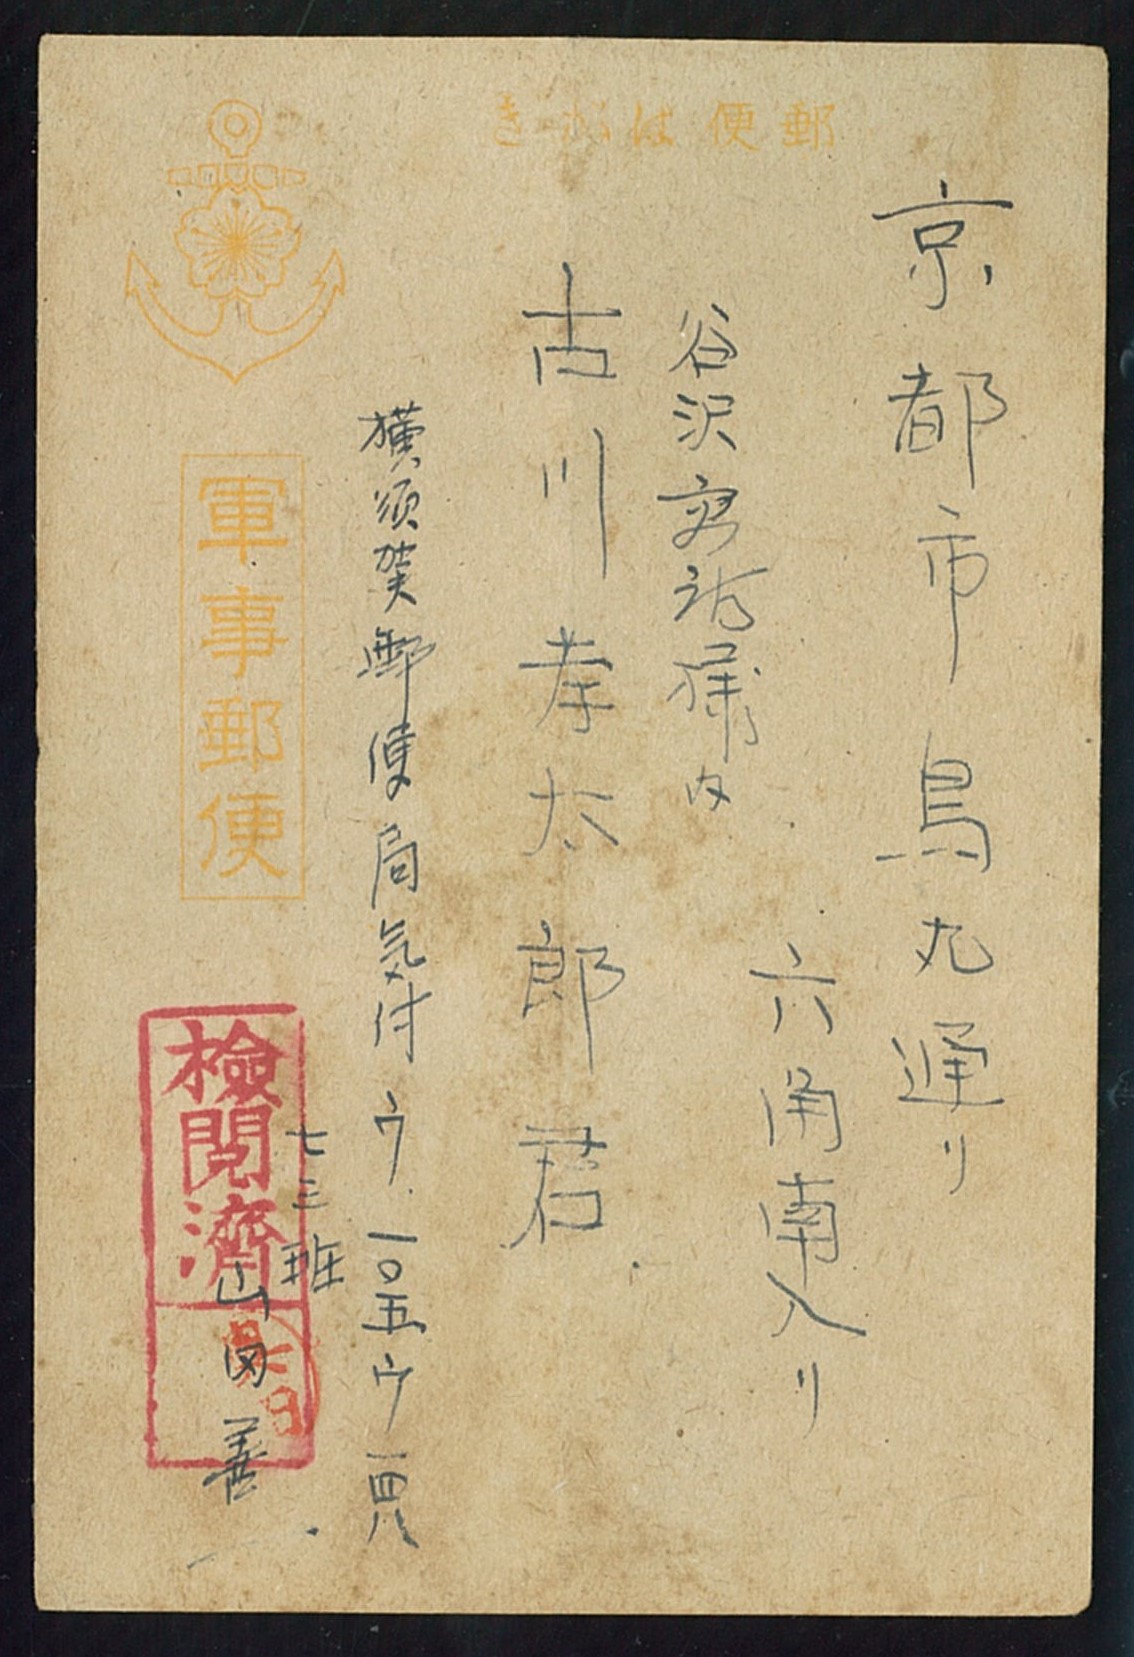 郵便はがき
京都市烏丸通り
六角南入り
谷沢
様内
古川孝太郎君
横須賀郵便局気付ウ一〇五ウ一四八
七三班
山田善一
軍事郵便
検閲濟